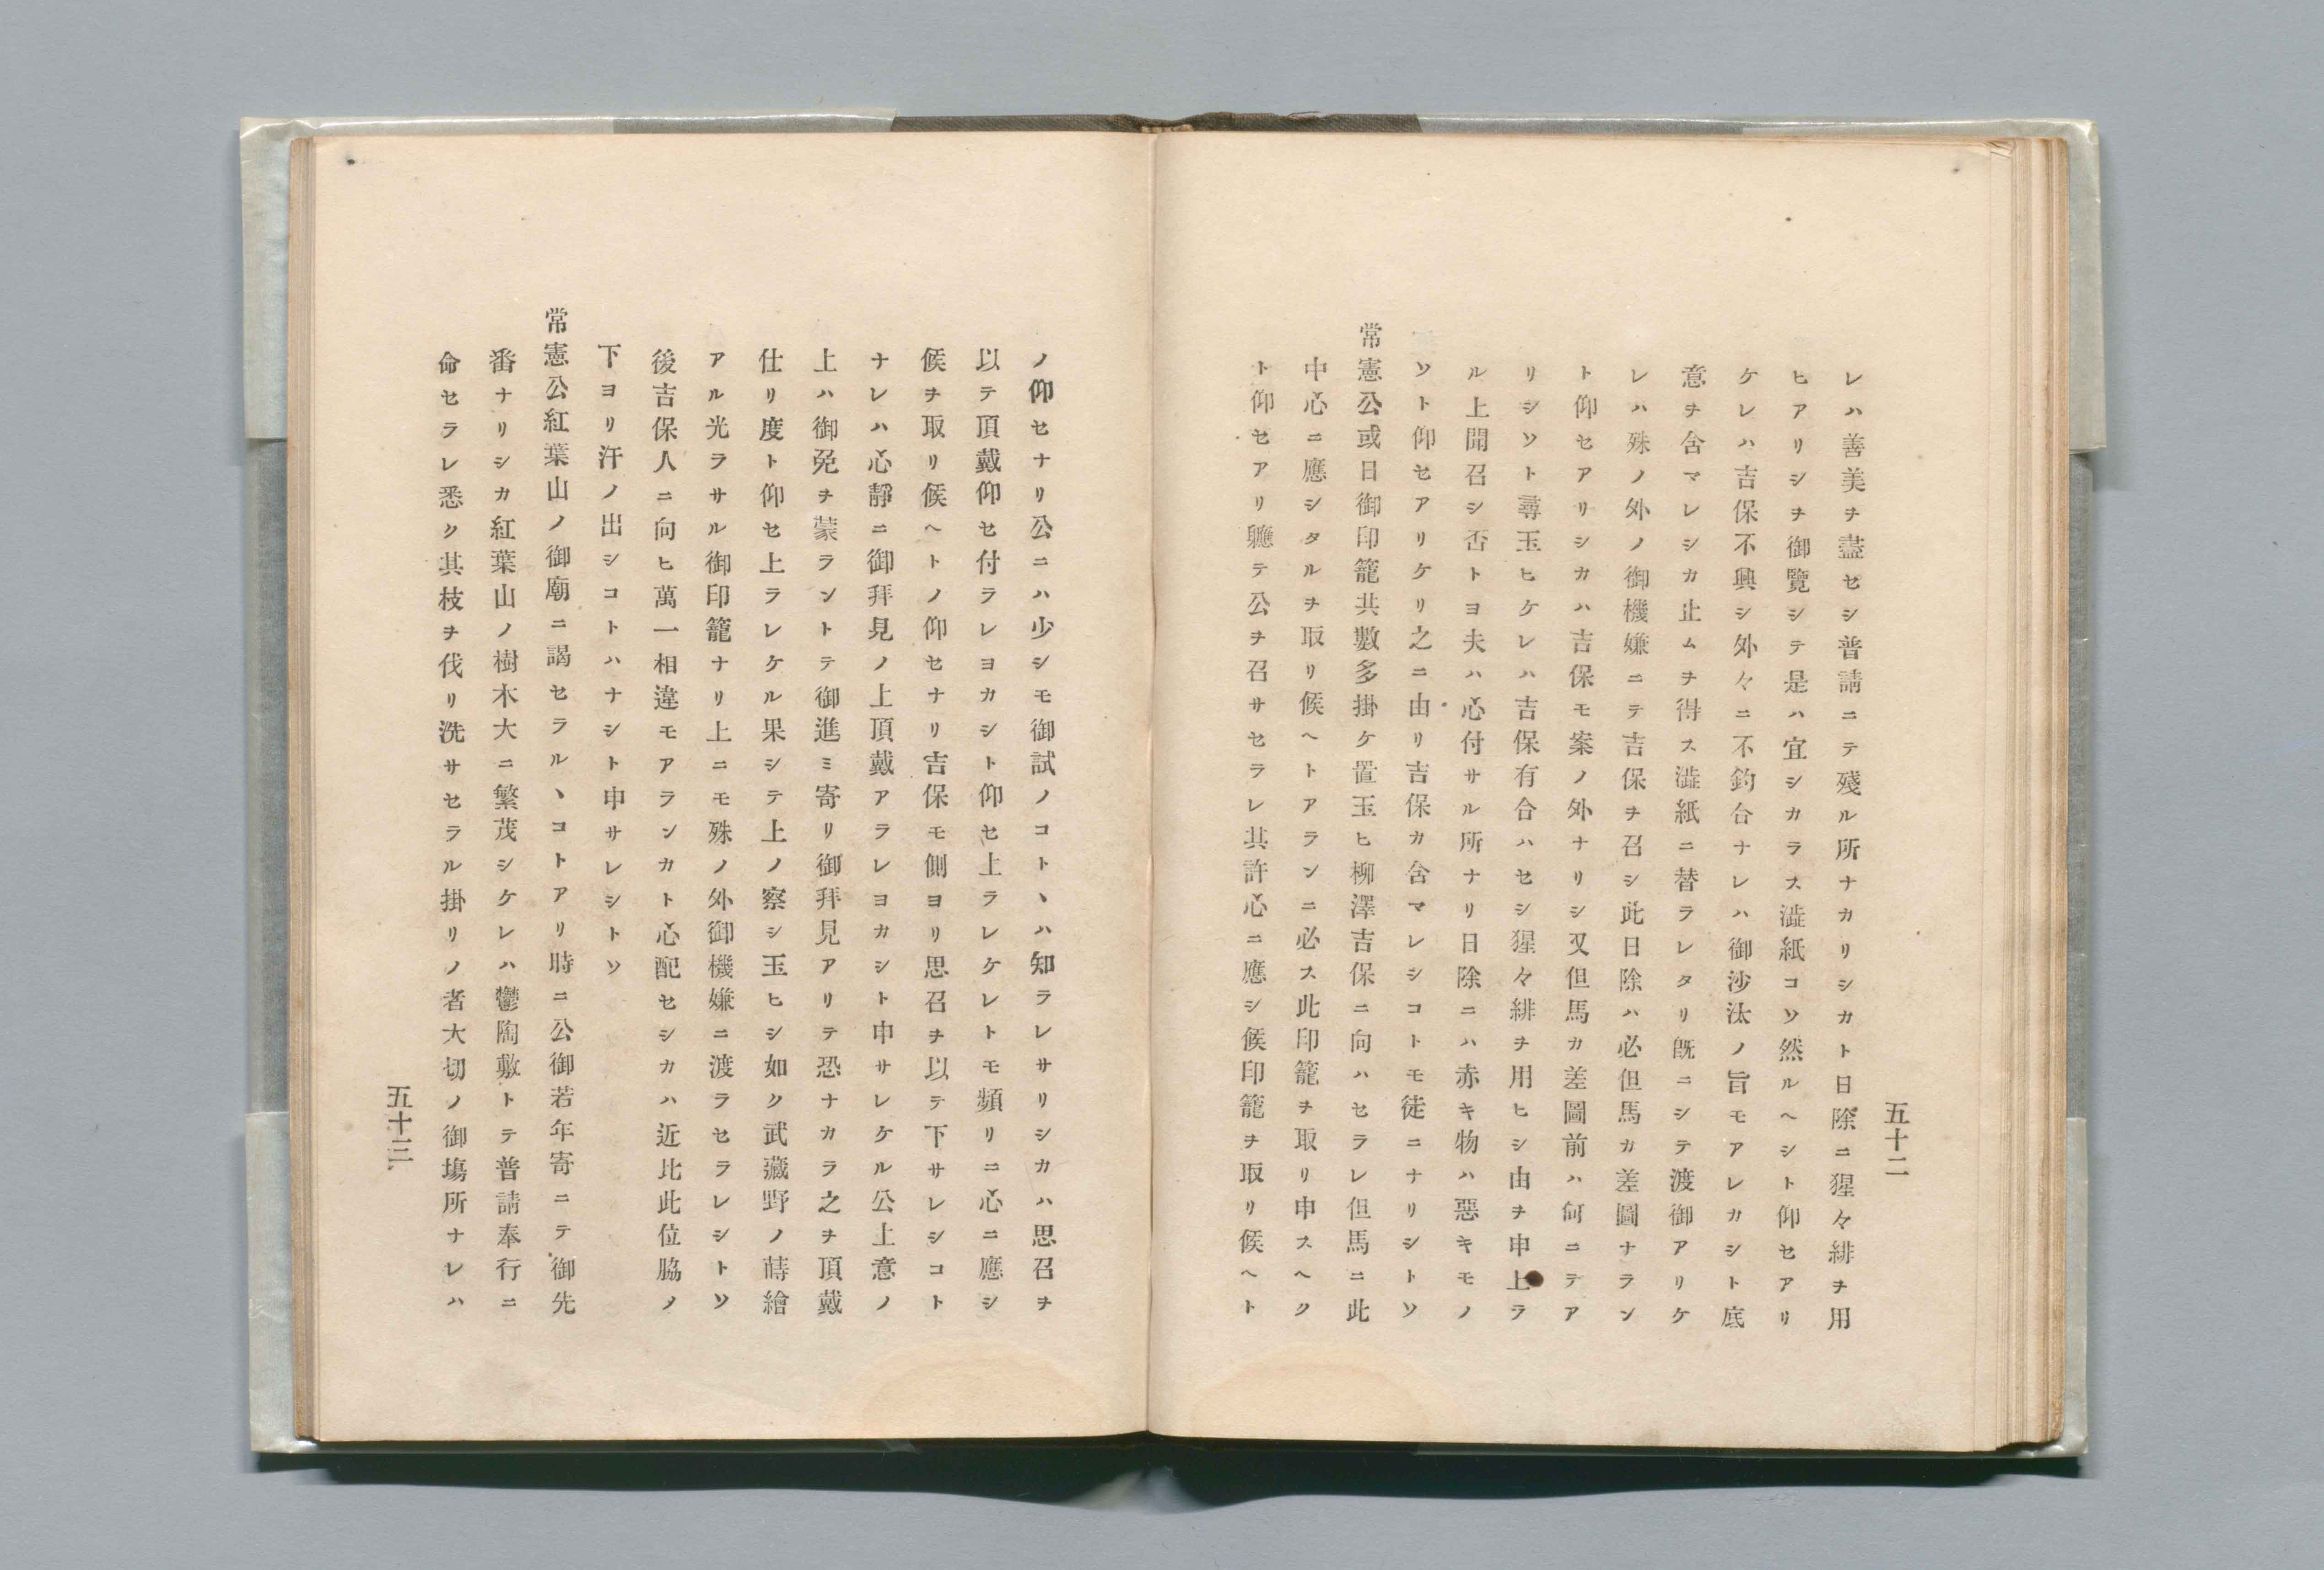 五十二
レハ善美ヲ盡セシ普請ニテ殘ル所ナカリシカト日除ニ猩々緋ヲ用
ヒアリシヲ御覽シテ是ハ宜シカラス澁紙コソ然ルヘシト仰セアリ
ケレハ吉保不興シ外々ニ不釣合ナレハ御沙汰ノ旨モアレカシト底
意ヲ含マレシカ止ムヲ得ス澁紙ニ替ラレタリ既ニシテ渡御アリケ
レハ殊ノ外ノ御機嫌ニテ吉保ヲ召シ此日除ハ必但馬カ差圖ナラン
ト仰セアリシカハ吉保モ案ノ外ナリシ又但馬カ差圖前ハ何ニテア
リシソト尋玉ヒケレハ吉保有合ハセシ猩々緋ヲ用ヒシ由ヲ申上ラ
ル上聞召シ否トヨ夫ハ心付サル所ナリ日除ニハ赤キ物ハ惡キモノ
ソト仰セアリケリ之ニ由リ吉保カ含マレシコトモ徒ニナリシトソ
常憲公或日御印籠共數多掛ケ置玉ヒ柳澤吉保ニ向ハセラレ但馬ニ此
中心ニ應シタルヲ取リ候ヘトアランニ必ス此印籠ヲ取リ申スヘク
ト仰セアリ軈テ公ヲ召サセラレ其許心ニ應シ候印籠ヲ取リ候ヘト
ノ仰セナリ公ニハ少シモ御試ノコトヽハ知ラレサリシカハ思召ヲ
以テ頂戴仰セ付ラレヨカシト仰セ上ラレケレトモ頻リニ心ニ應シ
候ヲ取リ候ヘトノ仰セナリ吉保モ側ヨリ思召ヲ以テ下サレシコト
ナレハ心靜ニ御拜見ノ上頂戴アラレヨカシト申サレケル公上意ノ
上ハ御免ヲ蒙ラントテ御進ミ寄リ御拜見アリテ恐ナカラ之ヲ頂戴
仕リ度ト仰セ上ラレケル果シテ上ノ察シ玉ヒシ如ク武藏野ノ蒔繪
アル光ラサル御印籠ナリ上ニモ殊ノ外御機嫌ニ渡ラセラレシトソ
後吉保人ニ向ヒ萬一相違モアランカト心配セシカハ近比此位脇ノ
下ヨリ汗ノ出シコトハナシト申サレシトソ
常憲公紅葉山ノ御廟ニ謁セラルヽコトアリ時ニ公御若年寄ニテ御先
番ナリシカ紅葉山ノ樹木大ニ繁茂シケレハ鬱陶敷トテ普請奉行ニ
命セラレ悉ク其枝ヲ伐リ洗サセラル掛リノ者大切ノ御塲所ナレハ
五十三